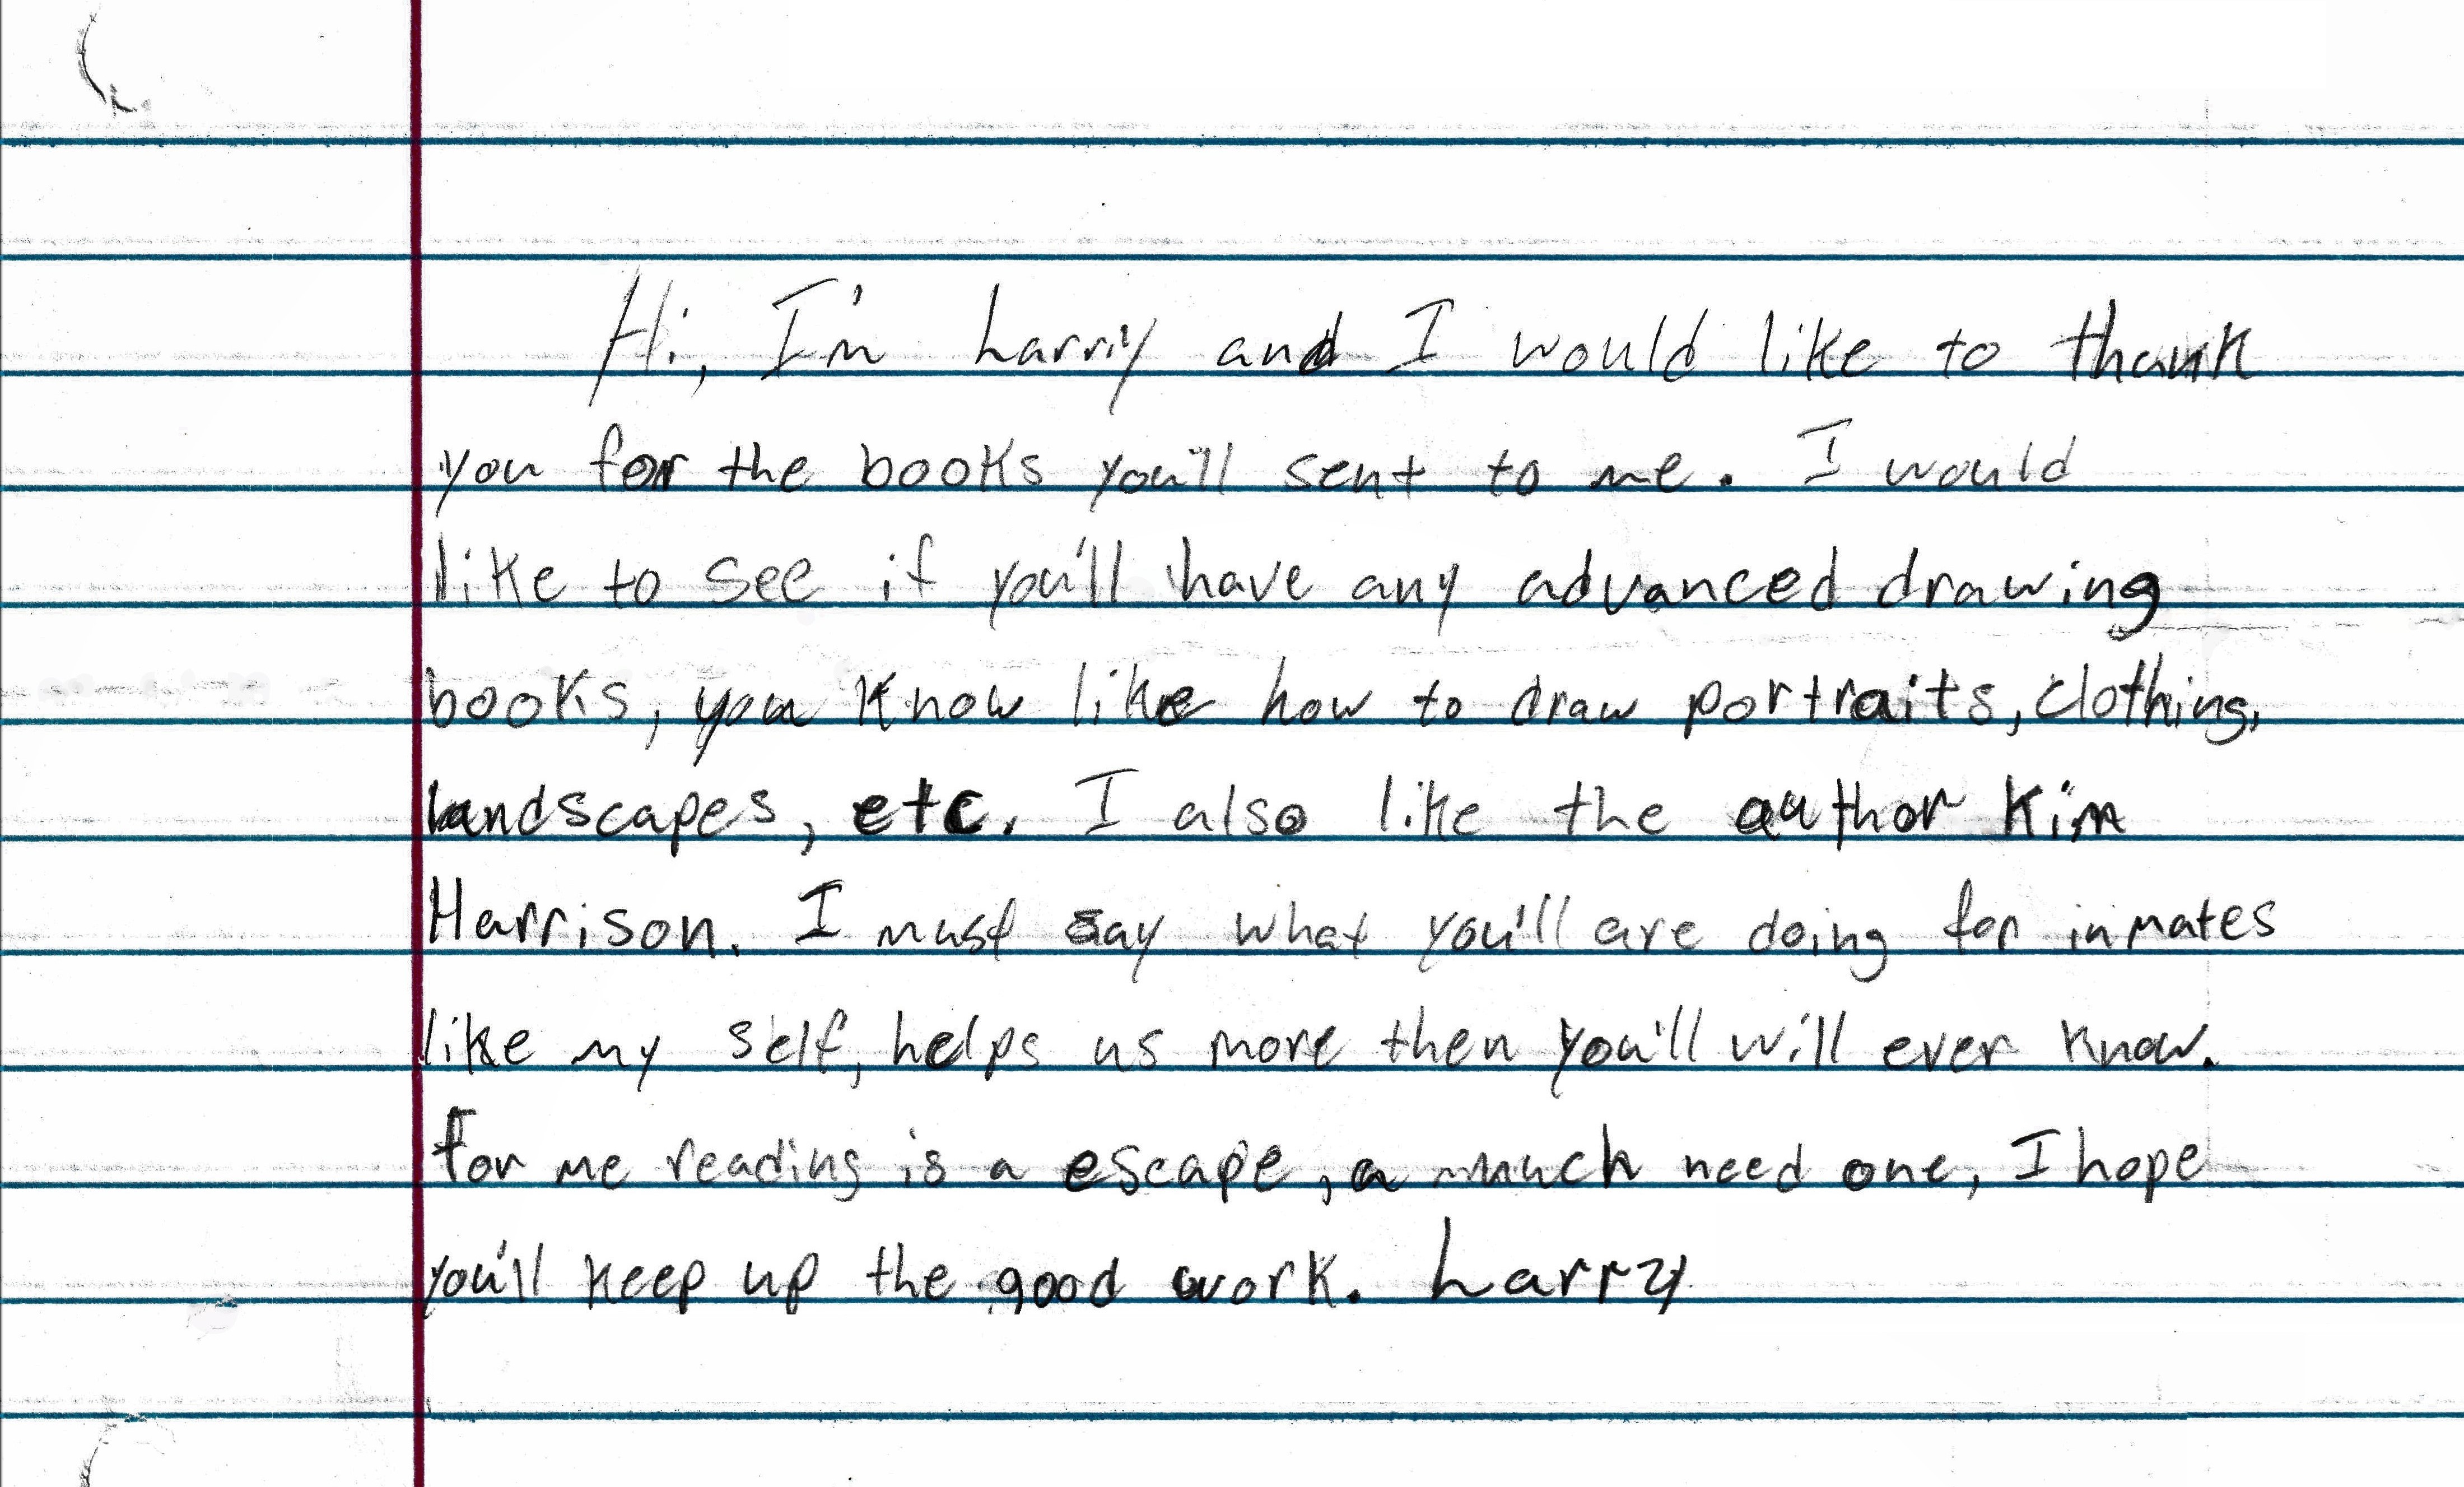 Hi, I'm Larry and I would like to thank
you for the books you'll sent to me. I would
like to see if you'll have any advanced drawing
books, you know like how to draw portraits, clothing,
landscapes, etc. I also like the author Kim
Harrison. I must say what you'll are doing for inmates
like my self, helps us more then you'll will ever know.
For me reading is a escape, a much need one, I hope
you'll keep up the good work. Larry